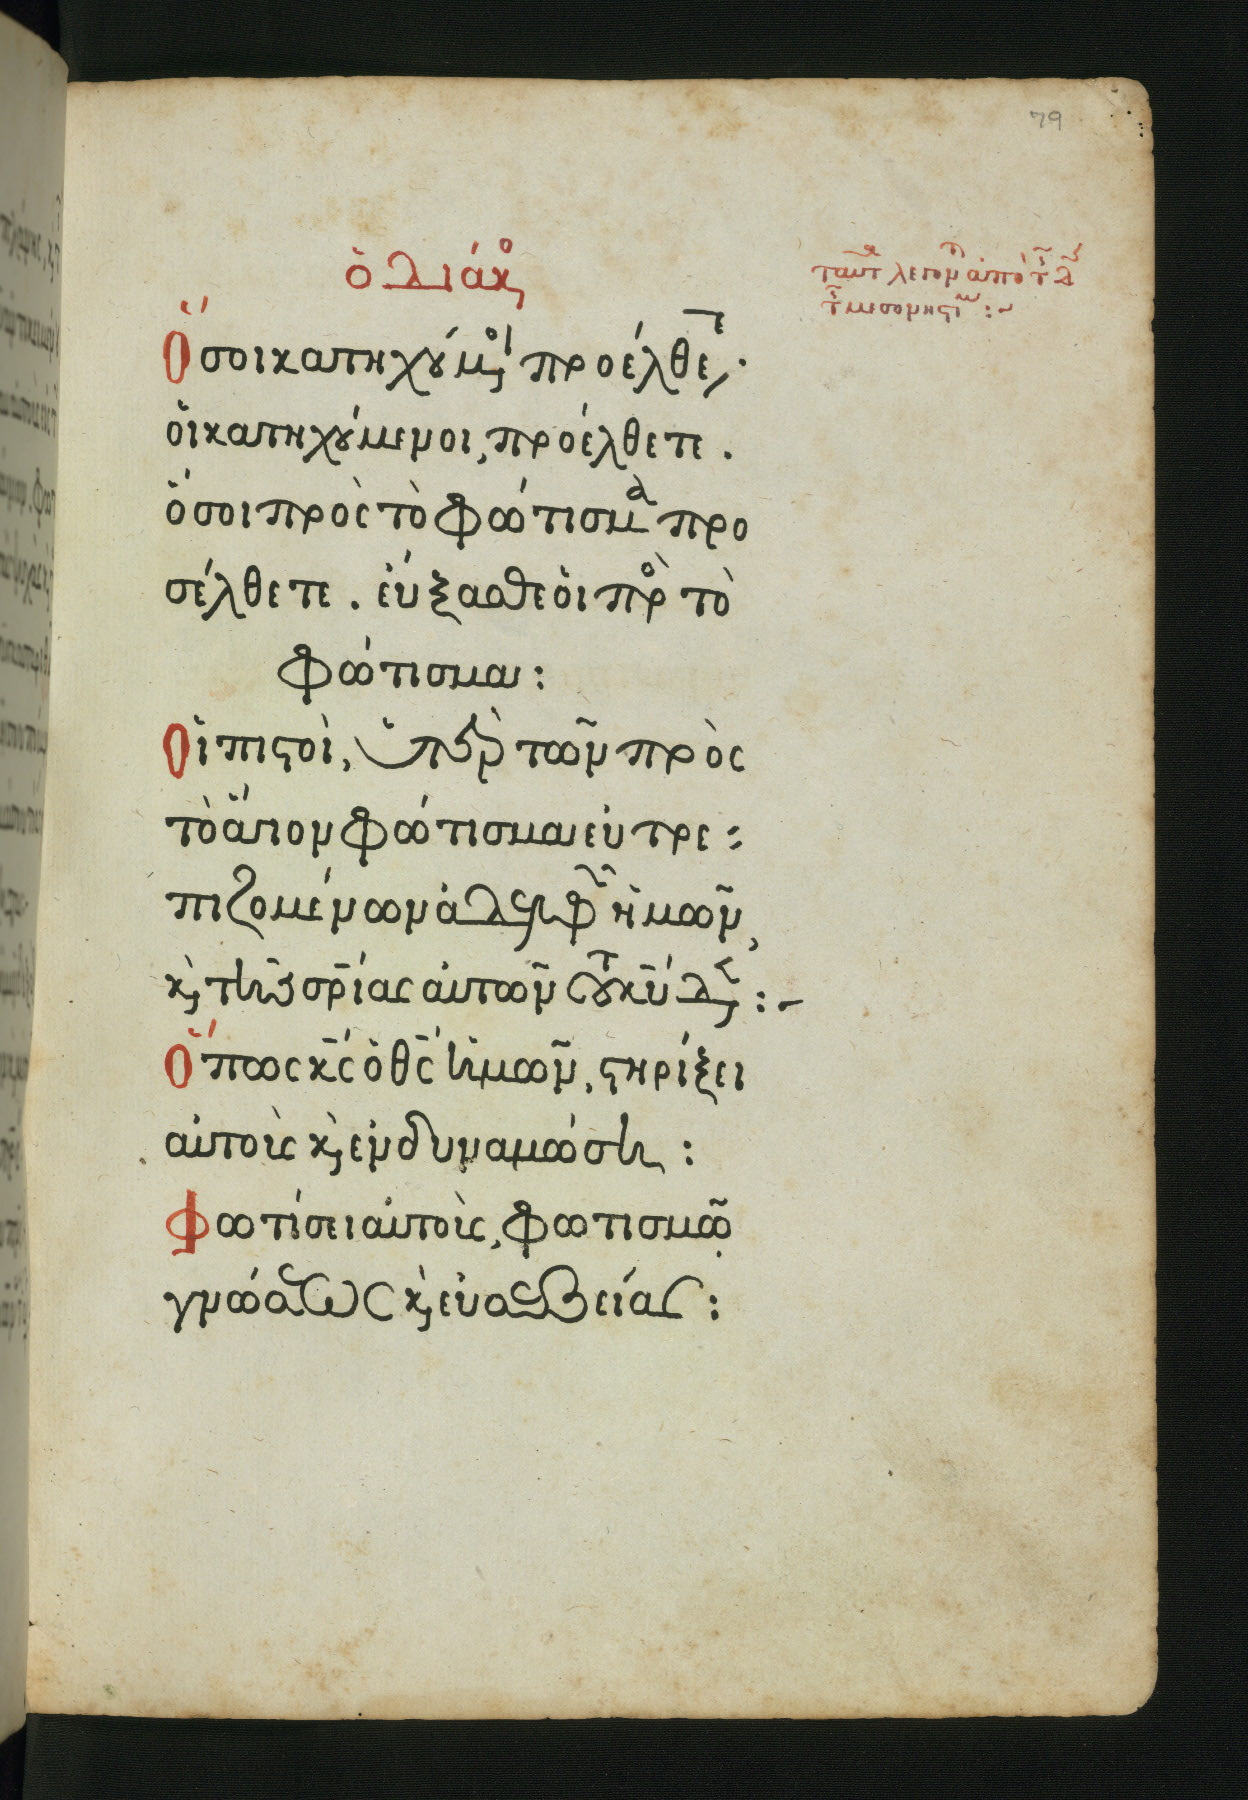 79
ὁ διάκο
Ὅσοι κατηχούμενοι προέλθετε·
οἱ κατηχούμενοι, προέλθετε.
ὅσοι πρὸς τὸ φώτισμα προ
σέλθετε. εὔξασθε οἱ πρὸς τὸ
φώτισμα:
Οἱ πιστοὶ, ὑπὲρ τῶν πρὸς
τὸ ἅγιον φώτισμα εὐτρε
πιζομένων ἀδελφῶν ἡμῶν,
κ, τῆς σρίας αὐτῶν τοῦ κυ δε:
Ὅπως κς ὁ θς ἡμῶν, στηρίξει
αὐτοὺς κ, ἐνδυναμώση:
Φωτίσει αὐτοὺς, φωτισμῷ
γνώσεως κ, εὐσεβείας: